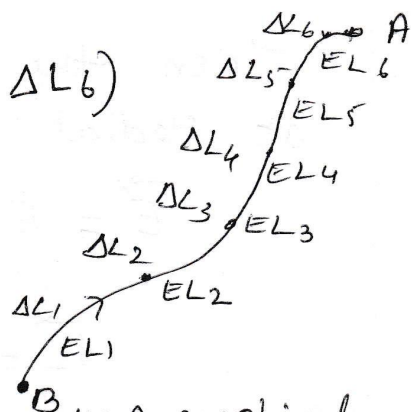 ΔL6 A
ΔL6)
ΔL5 EL6
EL5
ΔL4
EL4
ΔL3
EL3
ΔL2
EL2
ΔL1
EL1
B